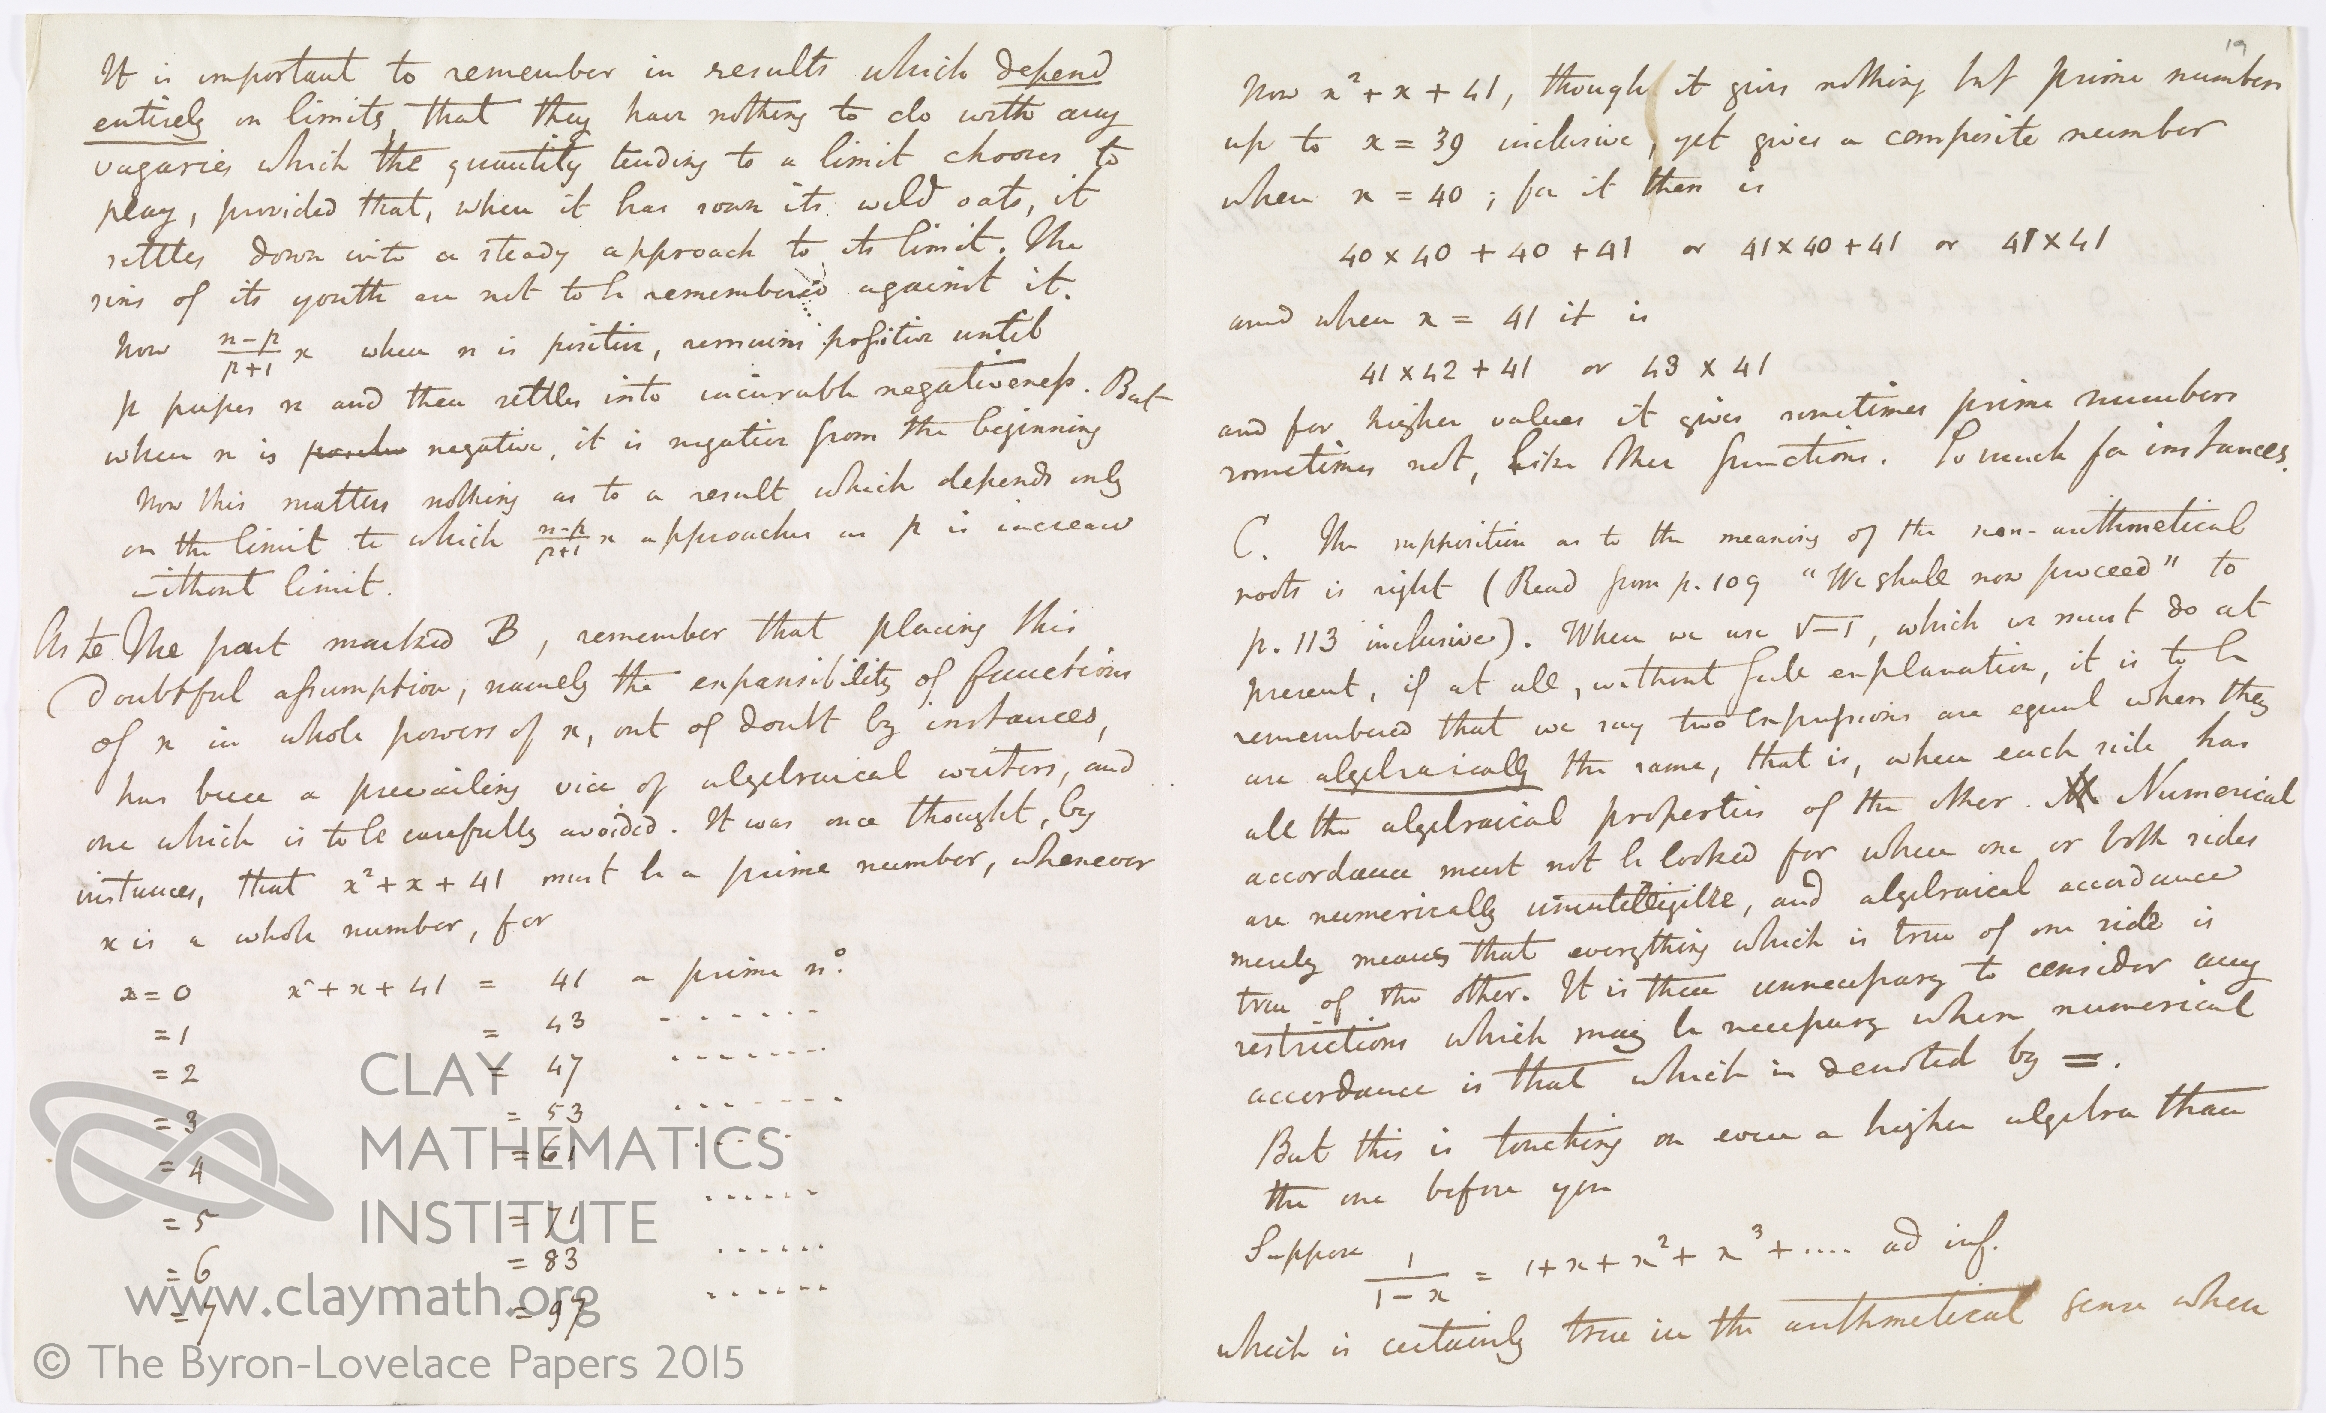 It is important to remember in results which depend
entirely on limits, that they have nothing to do with any
vagaries which the quantity tending to a limit chooses to
play, provided that, when it has sown its wild oats, it
settles down into a steady approach to its limit. The
sins of its youth are not to be remembered against it.
Now (n-p)/(p+1) x when n is positive, remains positive until
p passes n and then settles into incurable negativeness. But
when n is negative, it is negative from the beginning
Now this matters nothing as to a result which depends only
on the limit to which (n-p)/(p+1) x approaches as p is increased
without limit.
As to The part marked B, remember that placing this
doubtful assumption, namely the expansibility of functions
of x in whole powers of x, out of doubt by instances,
has been a prevailing vice of algebraical writers, and
one which is to be carefully avoided. It was once thought, by
instances, that x²+x+41 must be a prime number, whenever
x is a whole number, for
x=0 x²+x+41 = 41 a prime nº.
=1 = 43 .......
=2 = 47 .......
=3 = 53 .......
=4 = 61 .......
=5 = 71 ......
=6 = 83 ......
=7 = 97 ......
CLAY
MATHEMATICS
INSTITUTE
www.claymath.org
© The Byron-Lovelace Papers 2015
19
Now x²+x+41, though it gives nothing but prime numbers
up to x=39 inclusive, yet gives a composite number
when x = 40; for it then is
40×40 + 40 + 41 or 41×40+41 or 41×41
and when x = 41 it is
41×42+41 or 43 × 41
and for higher values it gives sometimes prime numbers
sometimes not, like other functions. So much for instances.
C. The supposition as to the meaning of the non-arithmetical
roots is right (Read from p. 109 "We shall now proceed" to
p. 113 inclusive). When we use √-1, which we must do at
present, if at all, without full explanation, it is to be
remembered that we say two expressions are equal when they
are algebraically the same, that is, when each side has
all the algebraical properties of the other. Numerical
accordance must not be looked for when one or both sides
are numerically unintelligible, and algebraical accordance
merely means that everything which is true of one side is
true of the other. It is then unnecessary to consider any
restrictions which may be necessary when numerical
accordance is that which is denoted by =.
But this is touching on even a higher algebra than
the one before you
Suppose 1/(1-x) = 1+x+x²+x³+.... ad inf.
which is certainly true in the arithmetical sense when